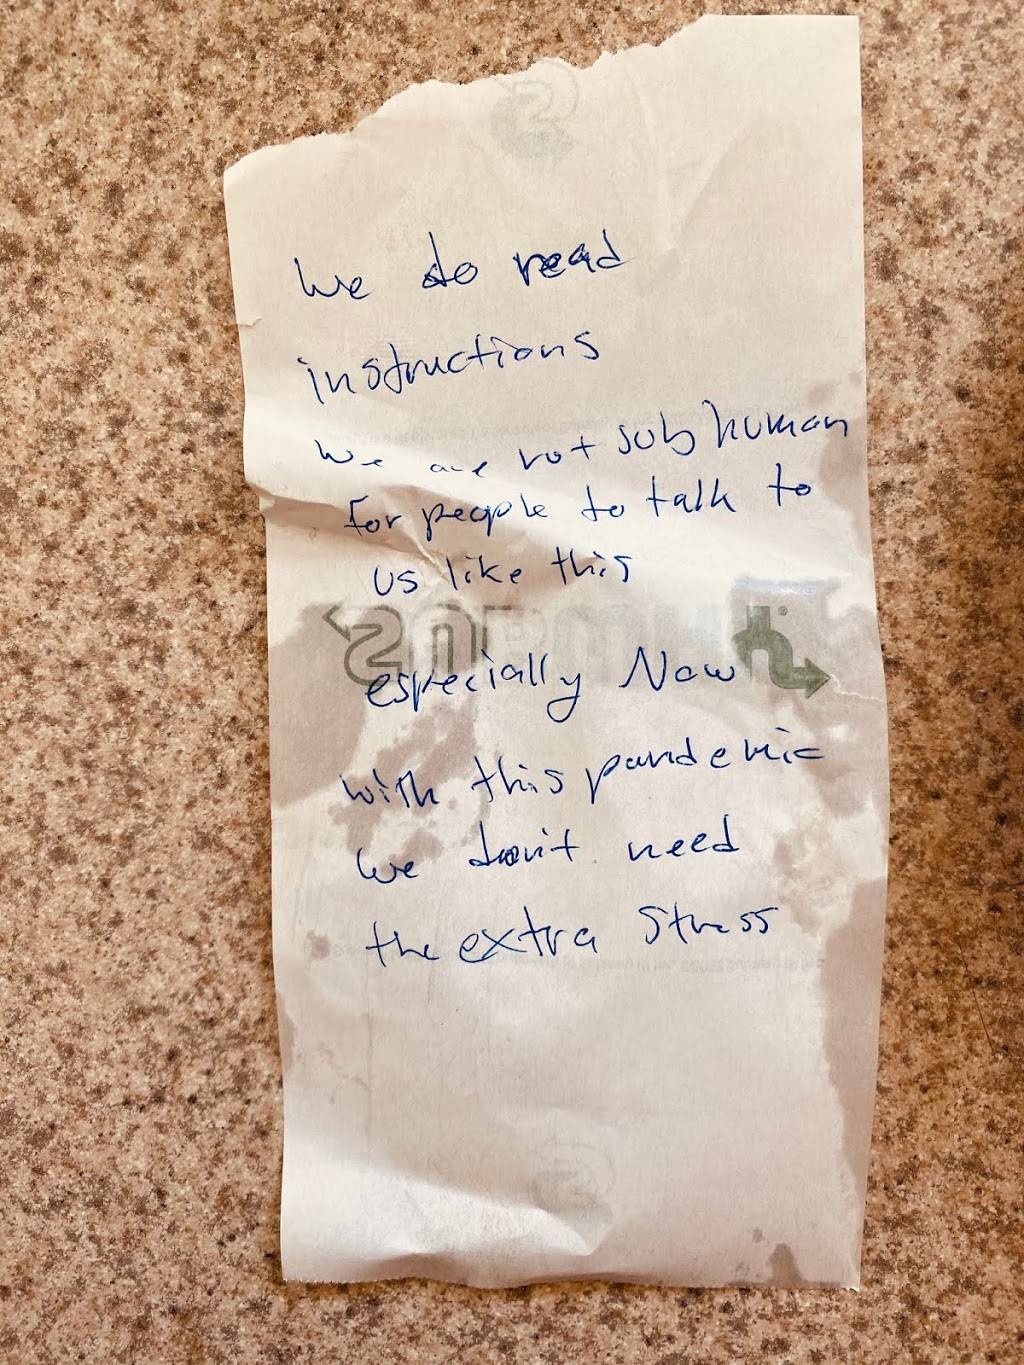 We do read
instructions
We are not sub human
For people to talk to
us like this
especially Now
with this pandemic
we don't need
the extra stress